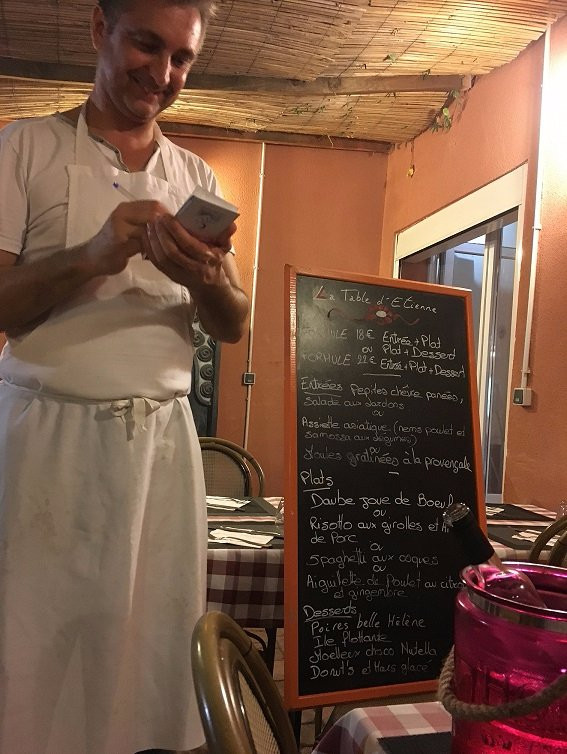 La Table d'Etienne
18€ Entrée + Plat
ou Plat + Dessert
FORMULE 22€ Entrée + Plat + Dessert
Entrées Pepites chèvre panées,
Salade aux lardons
ou
Assiette asiatique (nems poulet et
samossa aux légumes)
ou
Moules gratinées à la provençale
Plats
Daube joue de Boeuf
ou
Risotto aux girolles et
de Porc
ou
Spaghetti aux coques
ou
Aiguillette de Poulet au
et gingembre
Desserts
Poires belle Hélène
Ile Flottante
Moelleux choco Nutella
Donut's et Mars glacé